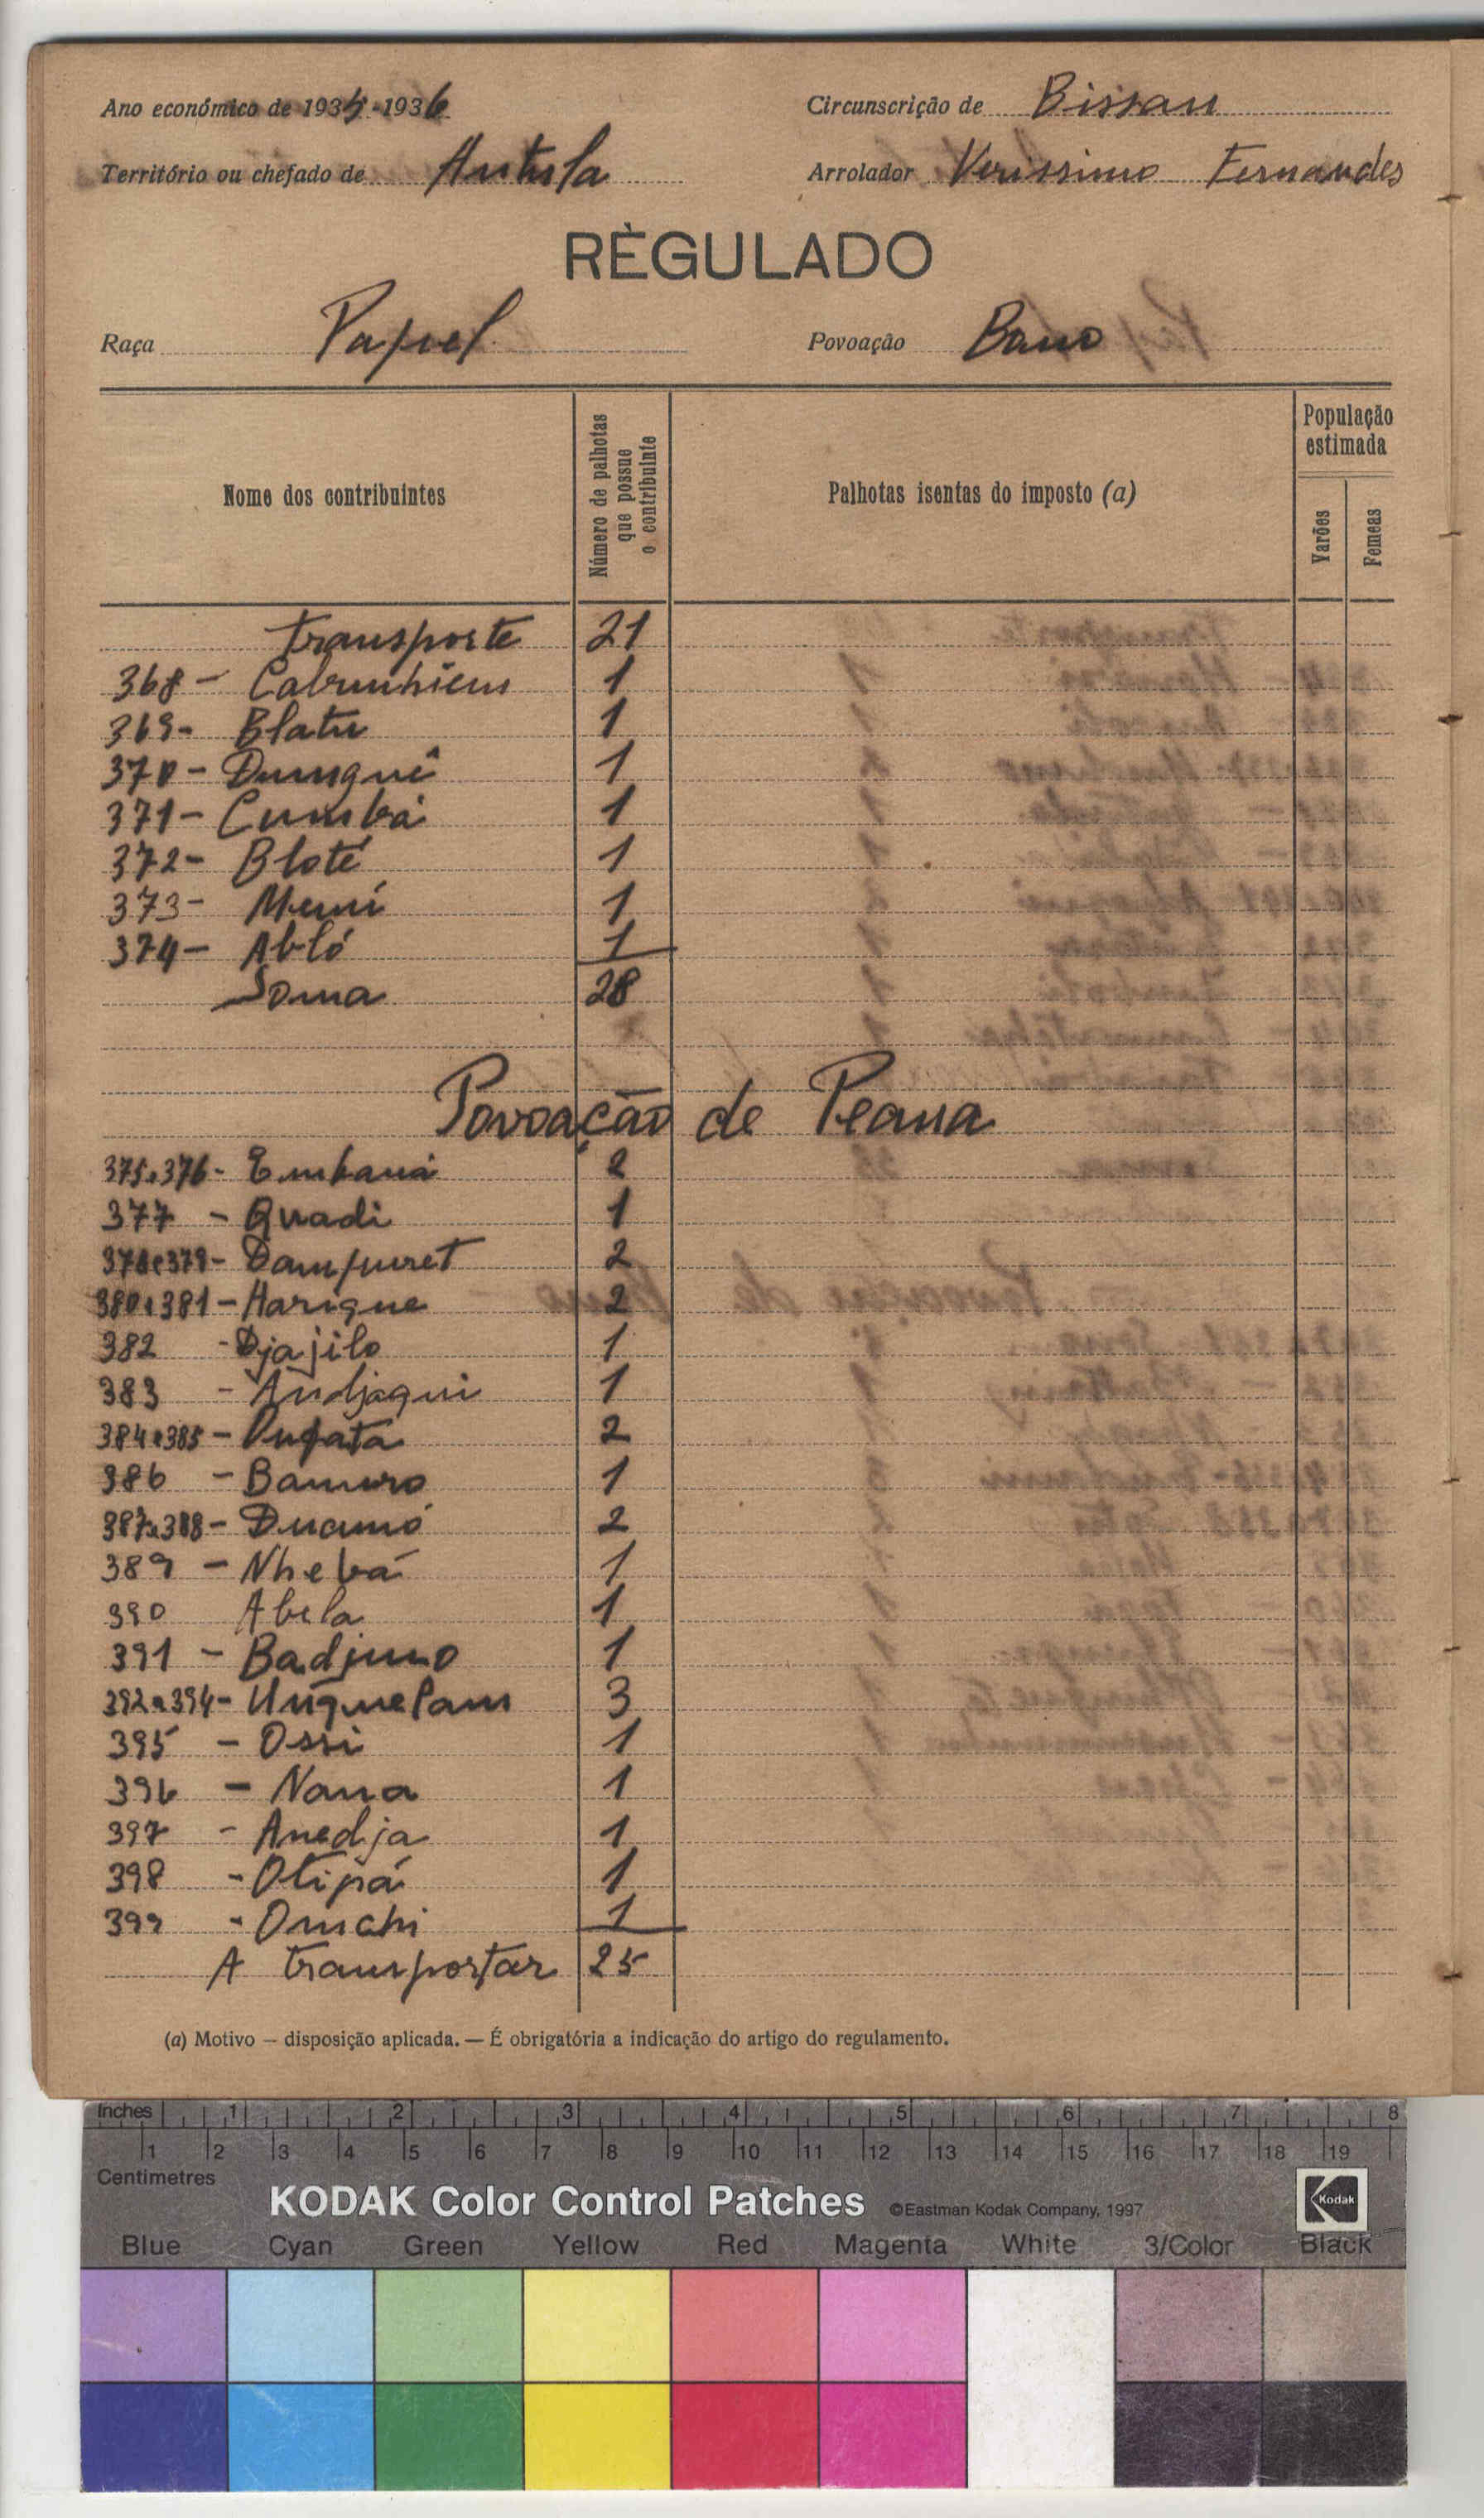 Ano económico de 1935-1936
Circunscrição de Bissau
Território ou chefado de Antula
Arrolador Verissimo Fernandes
RÈGULADO
Raça Papel
Povoação Bano
Nome dos contribuintes
Número de palhotas que possue o contribuinte
Palhotas isentas do imposto (a)
População estimada
Varões
Femeas
Transporte 21
368 - 1
369 - Blatu 1
370 - Dunguê 1
371 - Cumbá 1
372 - Bloté 1
373 - Mení 1
374 - Abló 1
Soma 28
Povoação de Peana
375 e 376 - Embaná 2
377 - Quadi 1
378 e 379 - Dampuret 2
380 e 381 - Harique 2
382 - Djajilo 1
383 - Andjaqui 1
384 e 385 - 2
386 - Bamuro 1
387 e 388 - Ducamó 2
389 - Nhebá 1
390 Abela 1
391 - Badjuno 1
392 a 394 - 3
395 - Ossi 1
396 - Nana 1
397 - Anedja 1
398 - Otipá 1
399 - Onuchi 1
A transportar 25
(a) Motivo — disposição aplicada. — É obrigatória a indicação do artigo do regulamento.
Inches 1 2 3 4 5 6 7 8
1 2 3 4 5 6 7 8 9 10 11 12 13 14 15 16 17 18 19
Centimetres
KODAK Color Control Patches ©Eastman Kodak Company, 1997 Kodak
Blue Cyan Green Yellow Red Magenta White 3/Color Black